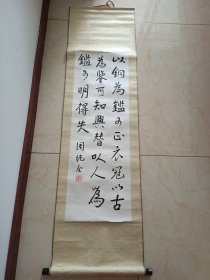 以銅為鑑可正衣冠以古
為鑒可知興替以人為
鑑可明得失